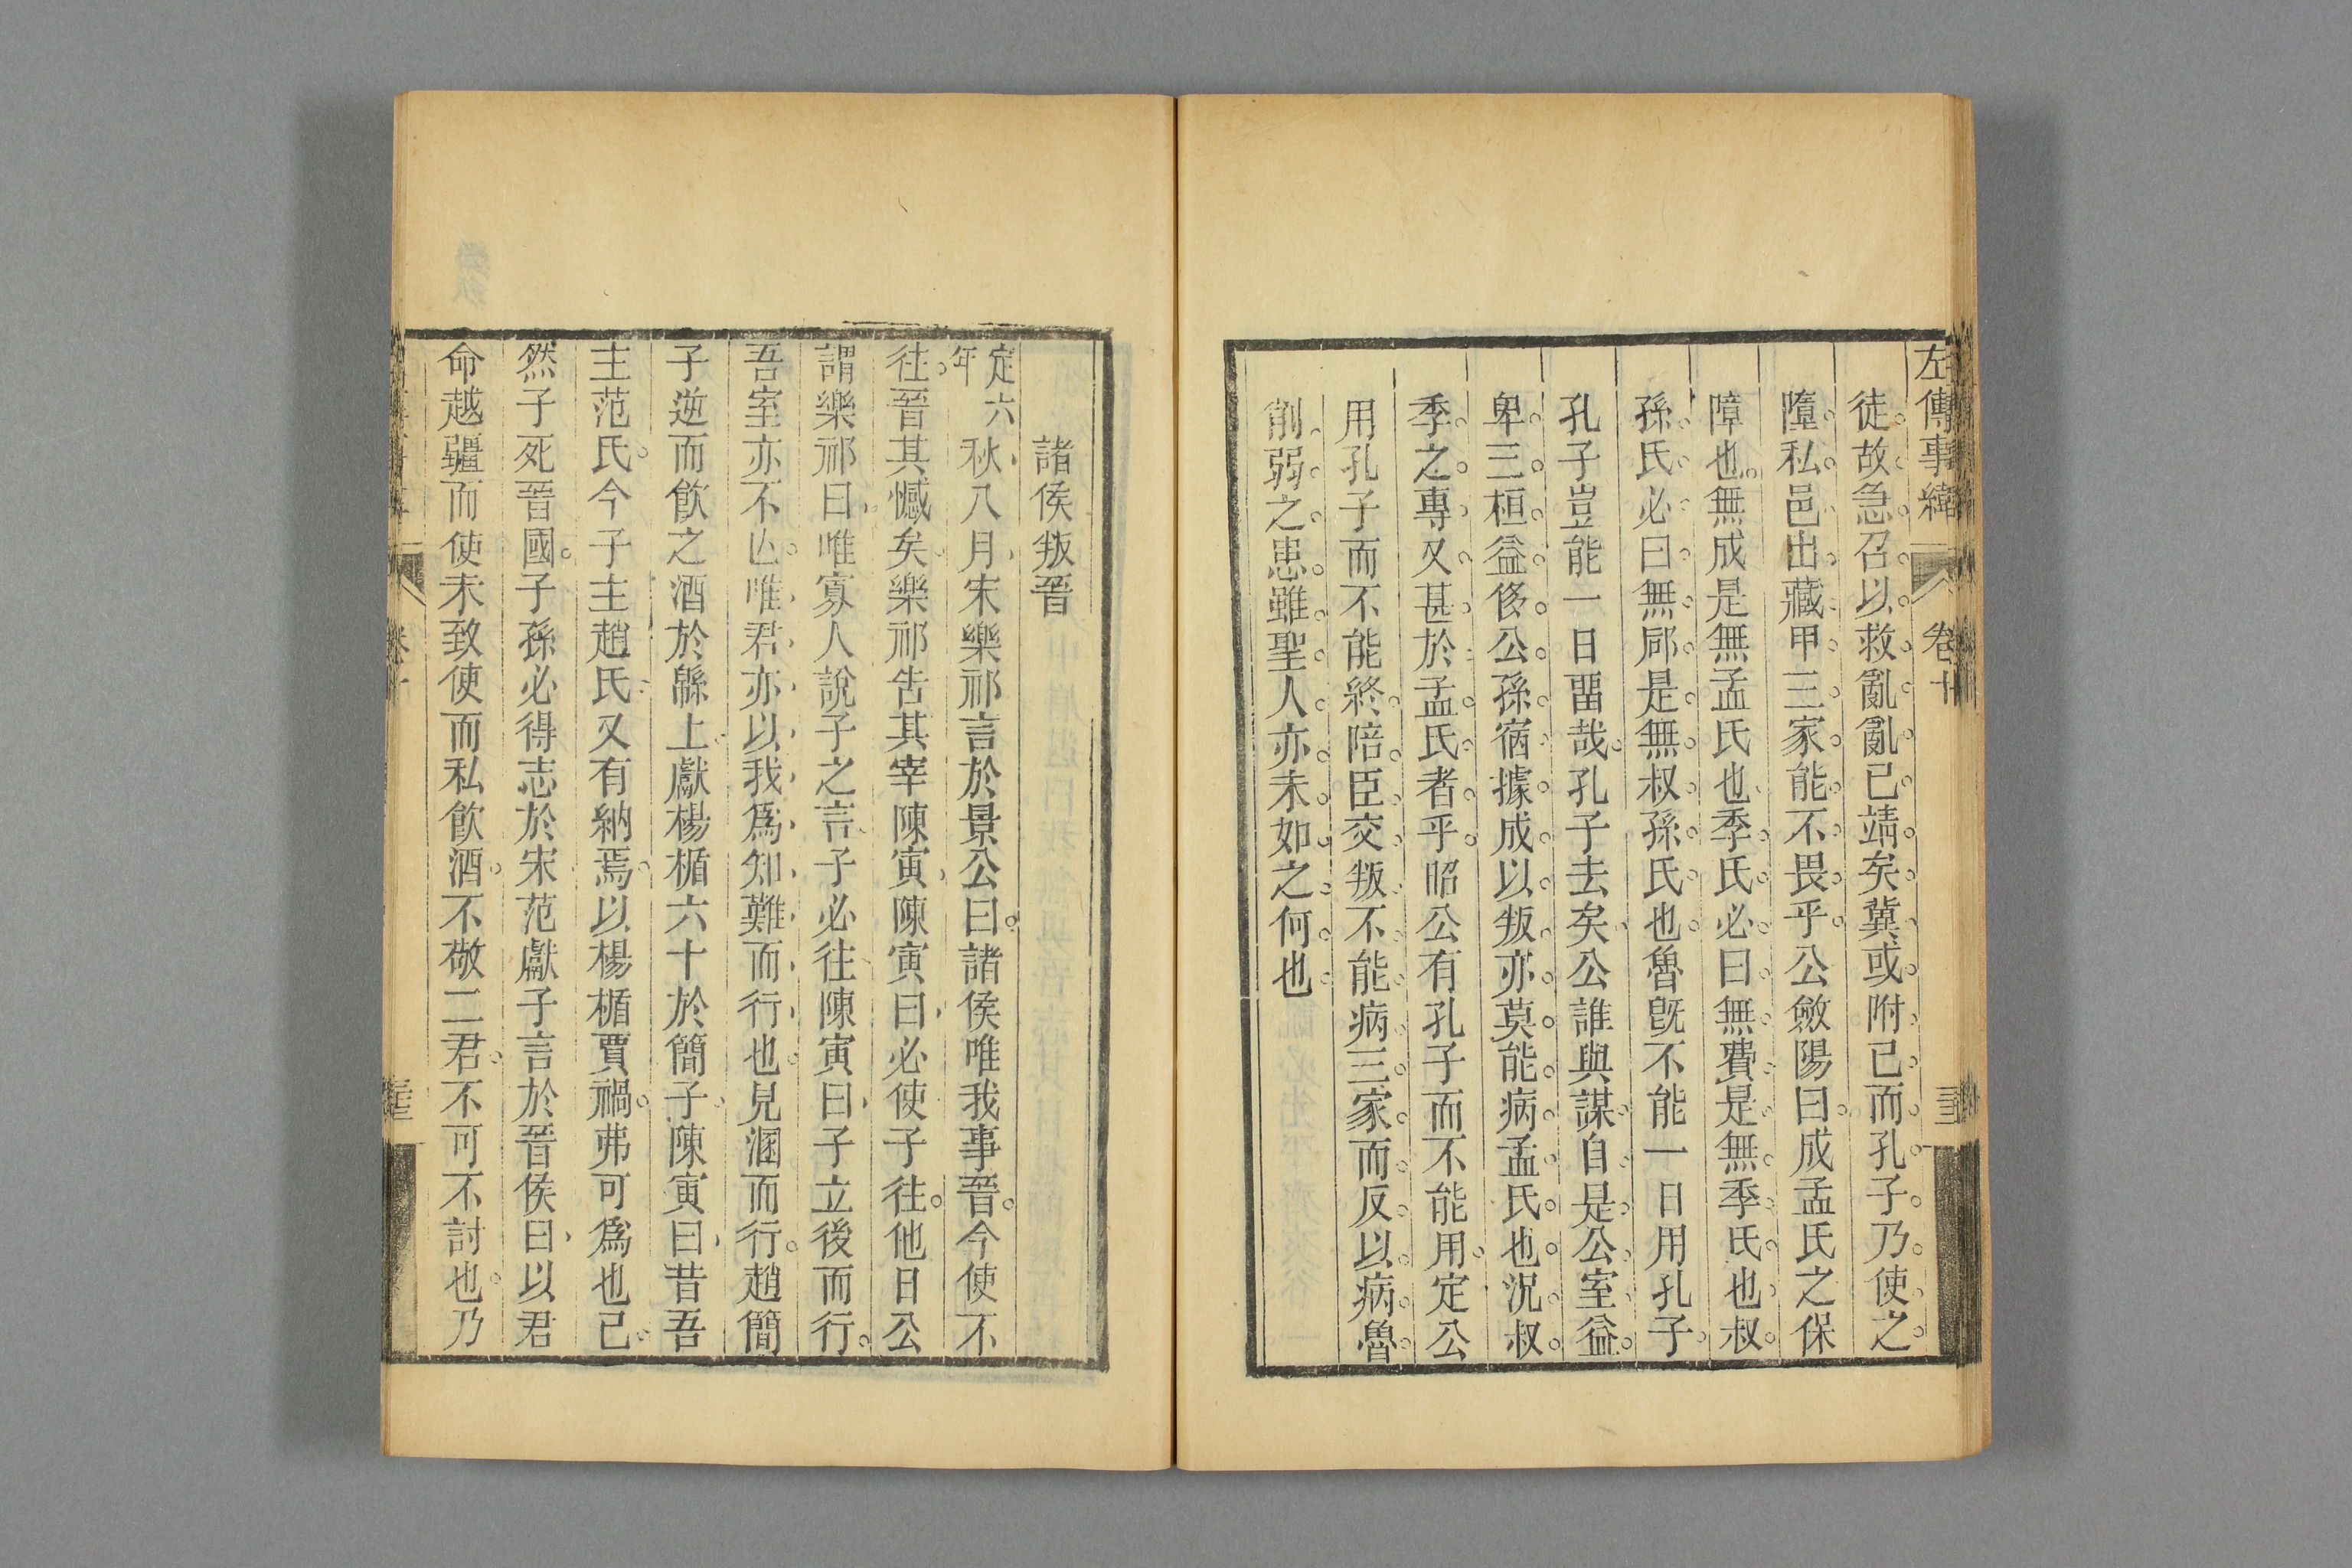 左傳事緯 卷十
徒故急召以救亂亂已靖矣冀或附已而孔子乃使之
隳私邑出藏甲三家能不畏乎公斂陽曰成孟氏之保
障也無成是無孟氏也季氏必曰無費是無季氏也叔
孫氏必曰無郈是無叔孫氏也魯旣不能一日用孔子
孔子豈能一日畱哉孔子去矣公誰與謀自是公室益
卑三桓益侈公孫宿據成以叛亦莫能病孟氏也況叔
季之專又甚於孟氏者乎昭公有孔子而不能用定公
用孔子而不能終陪臣交叛不能病三家而反以病魯
削弱之患雖聖人亦未如之何也
諸侯叛晉
定六年秋八月宋樂祁言於景公曰諸侯唯我事晉今使不
往晉其憾矣樂祁告其宰陳寅陳寅曰必使子往他日公
謂樂祁曰唯寡人說子之言子必往陳寅曰子立後而行
吾室亦不亾唯君亦以我爲知難而行也見溷而行趙簡
子逆而飮之酒於緜上獻楊楯六十於簡子陳寅曰昔吾
主范氏今子主趙氏又有納焉以楊楯賈禍弗可爲也已
然子死晉國子孫必得志於宋范獻子言於晉侯曰以君
命越疆而使未致使而私飮酒不敬二君不可不討也乃